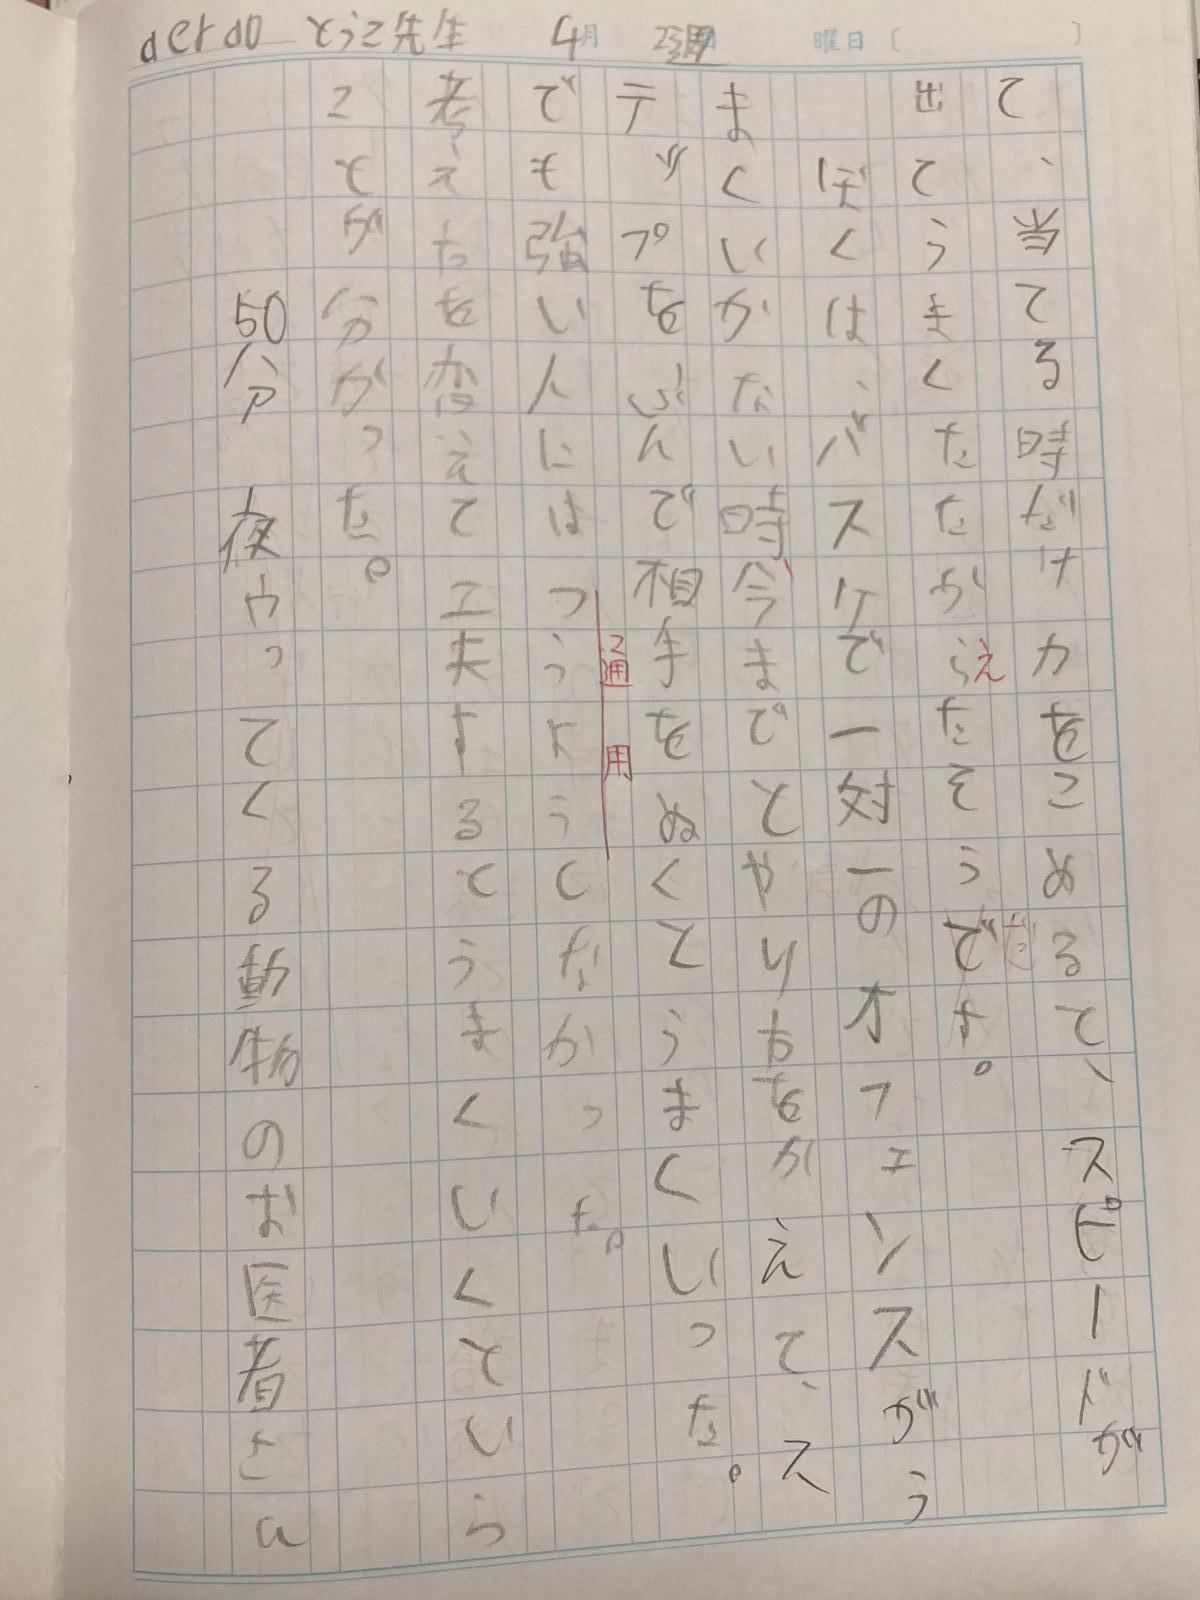 とうこ先生 4月 2週 曜日〔 〕
て、当てる時だけ力をこめるて、スピードが
出てうまくたたからたそうです。
え
だ
ぼくは、バスケで一対一のオフェンスがう
まくいかない時、今までとやり方をかえて、ス
テップをふんで相手をぬくとうまくいった。
でも強い人にはつうようしなかった。
通用
考えたを変えて工夫するとうまくいくといら
ことが分がった。
50分 夜やってくる動物のお医者さん